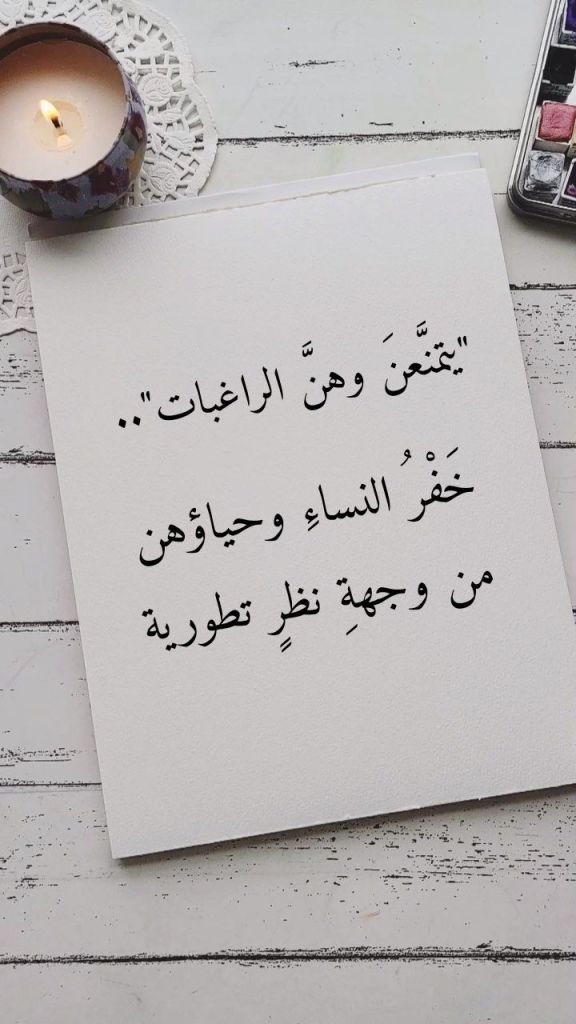 "يتمنَّعنَ وهنَّ الراغبات"..
خَفْرُ النساءِ وحياؤهن
من وجهةِ نظرٍ تطورية